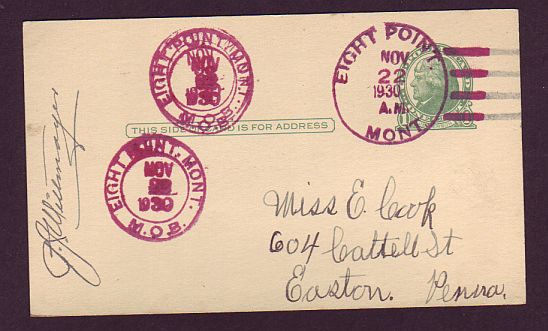 EIGHT POINT, MONT.
NOV
22
1930
M.O.B.
EIGHT POINT,
NOV
22
1930
A.M.
MONT.
THIS SIDE OF CARD IS FOR ADDRESS
EIGHT POINT, MONT.
NOV
22
1930
M.O.B.
Miss E. Cook
604 Cattell St
Easton. Penna.